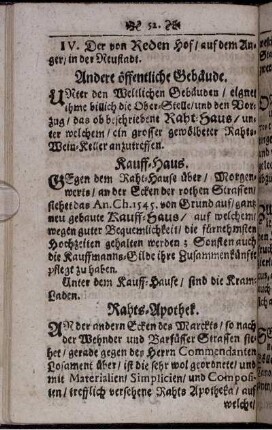 52.
IV. Der von Reden Hof/ auf dem An-
ger/ in der Neustadt.
Andere öffentliche Gebäude.
UNter den Weltlichen Gebäuden/ eignet
ihme billich die Ober-Stelle/ und den Vor-
zug/ das ob beschriebene Raht-Haus/ un-
ter welchem/ ein grosser gewölbeter Rahts-
Wein-Keller anzutreffen.
Kauff-Haus.
GEgen dem Raht-Hause über/ Morgen-
werts/ an der Ecken der rothen Strassen/
stehet das An. Ch. 1545. von Grund auf/ ganz
neu gebaute Kauff-Haus/ auf welchem/
wegen guter Bequemlichkeit/ die fürnehmsten
Hochzeiten gehalten werden; Sonsten auch
die Kauffmanns-Gilde ihre Zusammenkünfte
pflegt zu haben.
Unter dem Kauff-Hause/ sind die Kram-
Laden.
Rahts-Apothek.
AN der andern Ecken des Marckts/ so nach
der Wehnder und Barfüsser Strassen ste-
het/ gerade gegen des Herrn Commendanten
Losament über/ ist die sehr wol geordnete/ und
mit Materialien/ Simplicien/ und Composi-
ten/ trefflich versehene Rahts Apotheka/ auf
welche/